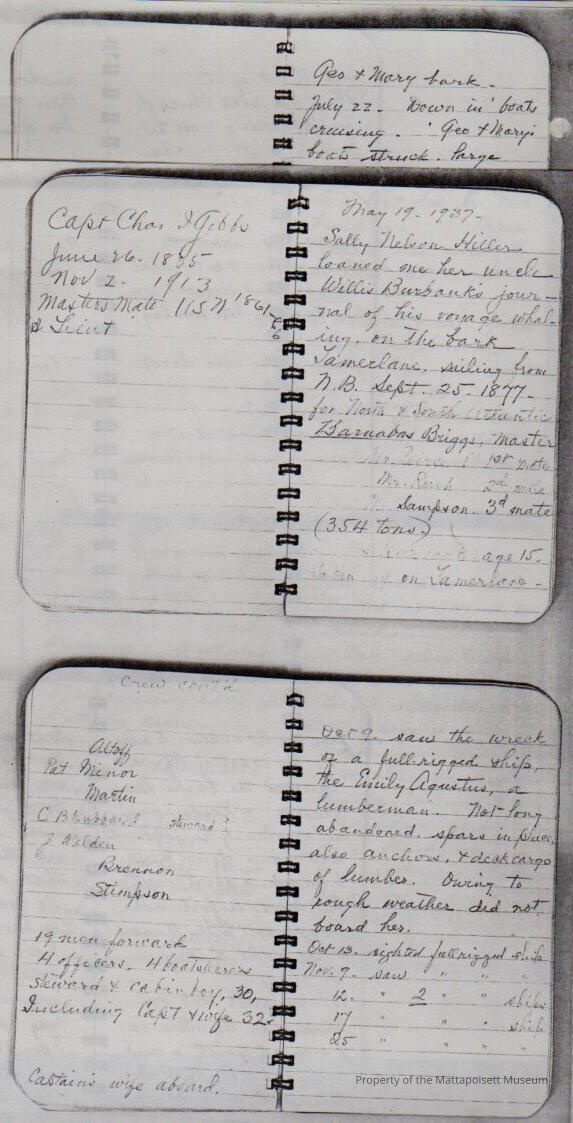 Geo & Mary bark.
July 22. Down in boats
cruising. Geo & Mary's
boats struck. Large
Capt Chas Gibbs
June 26. 1835
Nov 2. 1913
Masters Mate USN 1861
& Lieut
May 19 - 1937 -
Sally Nelson Hiller
loaned me her uncle
Willis Burbank's jour-
nal of his voyage whal-
ing, on the bark
Tamerlane, sailing from
N.B. Sept. 25. 1877 -
for North & South Atlantic
Barnabas Briggs, Master
1st mate
Mr. 2d mate
Sampson. 3d mate
(354 tons)
age 15.
on Tamerlane -
Crew cont'd
Pat Minor
Martin
steward?
J Welden
Brennon
Stimpson
19 men forward
4 officers, 4 boatsteerers
steward & cabin boy, 30,
Including Capt & wife 32.
Captain's wife aboard.
Oct 9. saw the wreck
of a full-rigged ship,
the Emily Agustus, a
lumberman. Not long
abandoned, spars in place,
also anchors, & deck cargo
of lumber. Owing to
rough weather did not
board her.
Oct 13. sighted full rigged ship
Nov. 9. saw " " "
12. " 2 " " ships
17 " " " ship
25 " " " "
Property of the Mattapoisett Museum